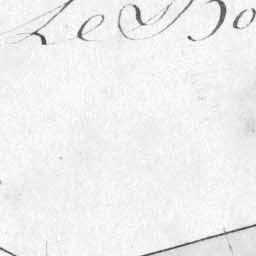 Le Bo